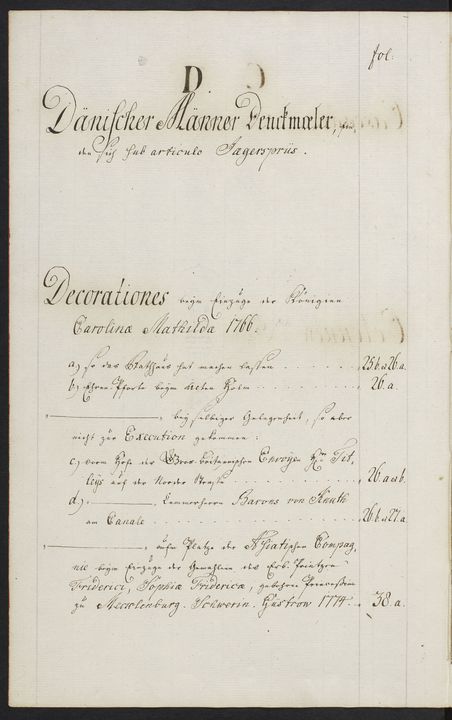 fol:
D
Dänischer Männer Denckmæler, fin,
den sich sub articulo Jægerspriis.
Decorationes beym Einzuge der Königinn
Carolinæ Mathildæ 1766.
a) so das Rathhaus hat machen lassen . . . . . . . 25.b.a 26.a.
b) Ehren Pforte beym alten Holm . . . . . . . . 26.a.
———————, bey selbiger Gelegenheit, so aber
nicht zur Execution gekommen:
c) vorm Hofe des Gros-brittannischen Envoÿen Hrn Tit-
leÿs auf der Norder Strasse . . . . . . . . . 26.a et b.
d) ———————, Cammerherrn Barons von Knuth
am Canale . . . . . . . . . . . . 26.b.a 27.a
———————, aufm Platze der Asiatischen Compag-
nie beym Einzuge der Gemahlinn des Erb-Printzen
Friderici, Sophiæ Fridericæ, gebohrne Princessinn
zu Mecklenburg. Schwerin. Gustrow 1774. . 38.a.